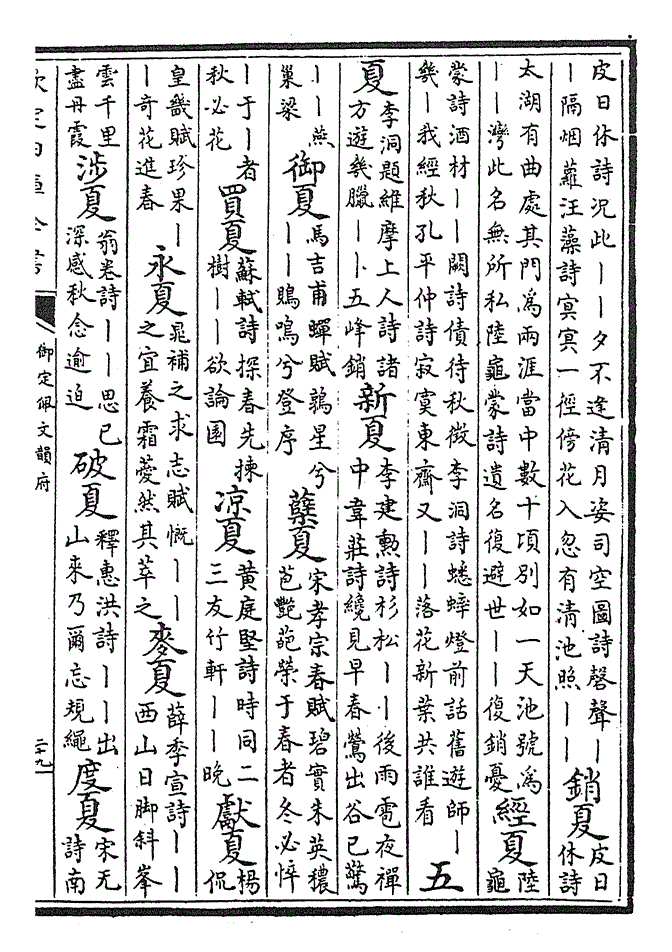 皮日休詩况此丨丨夕不逢清月姿司空圖詩磬聲丨
丨隔烟蘿汪藻詩冥冥一徑傍花入忽有清池照丨丨
銷夏
皮日
休詩
太湖有曲處其門爲兩涯當中數十頃别如一天池號爲
丨丨灣此名無所私陸龜蒙詩遺名復避世丨丨復銷憂
經夏
陸
龜
蒙詩酒材丨丨闕詩債待秋徵李洞詩蟋蟀燈前話舊遊師丨
幾丨我經秋孔平仲詩寂寞東齋又丨丨落花新葉共誰看
五
夏
李洞題維摩上人詩諸
方遊幾臘丨丨五峰銷
新夏
李建勳詩杉松丨丨後雨雹夜禪
中韋莊詩纔見早春鶯出谷已驚
丨丨燕
巢梁
御夏
馬吉甫蟬賦鶉星兮
丨丨鵙鳴兮登序
蘖夏
宋孝宗春賦碧實朱英穠
芭艷葩榮于春者冬必悴
丨于丨者
秋必花
買夏
蘇軾詩探春先揀
樹丨丨欲論園
凉夏
黄庭堅詩時同二
三友竹軒丨丨晚
獻夏
楊
侃
皇畿賦珍果丨
丨奇花進春
永夏
晁補之求志賦慨丨丨
之宜養霜薆然其萃之
麥夏
薛季宣詩丨丨
西山日脚斜峯
雲千里
盡丹霞
涉夏
翁卷詩丨丨思已
深感秋念逾迫
破夏
釋惠洪詩丨丨出
山來乃爾忘規繩
度夏
宋无
詩南
欽定四庫全書
御定佩文韻府
二九